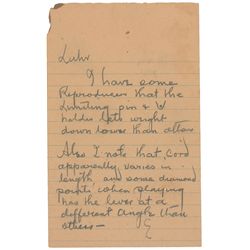 Luhr
I have some
Reproducers that the
Limiting pin &
holder lets weight
down lower than others
Also I note that Cord
apparently varies in
length and some diamond
points when playing
has the lever at a
different angle than
others —